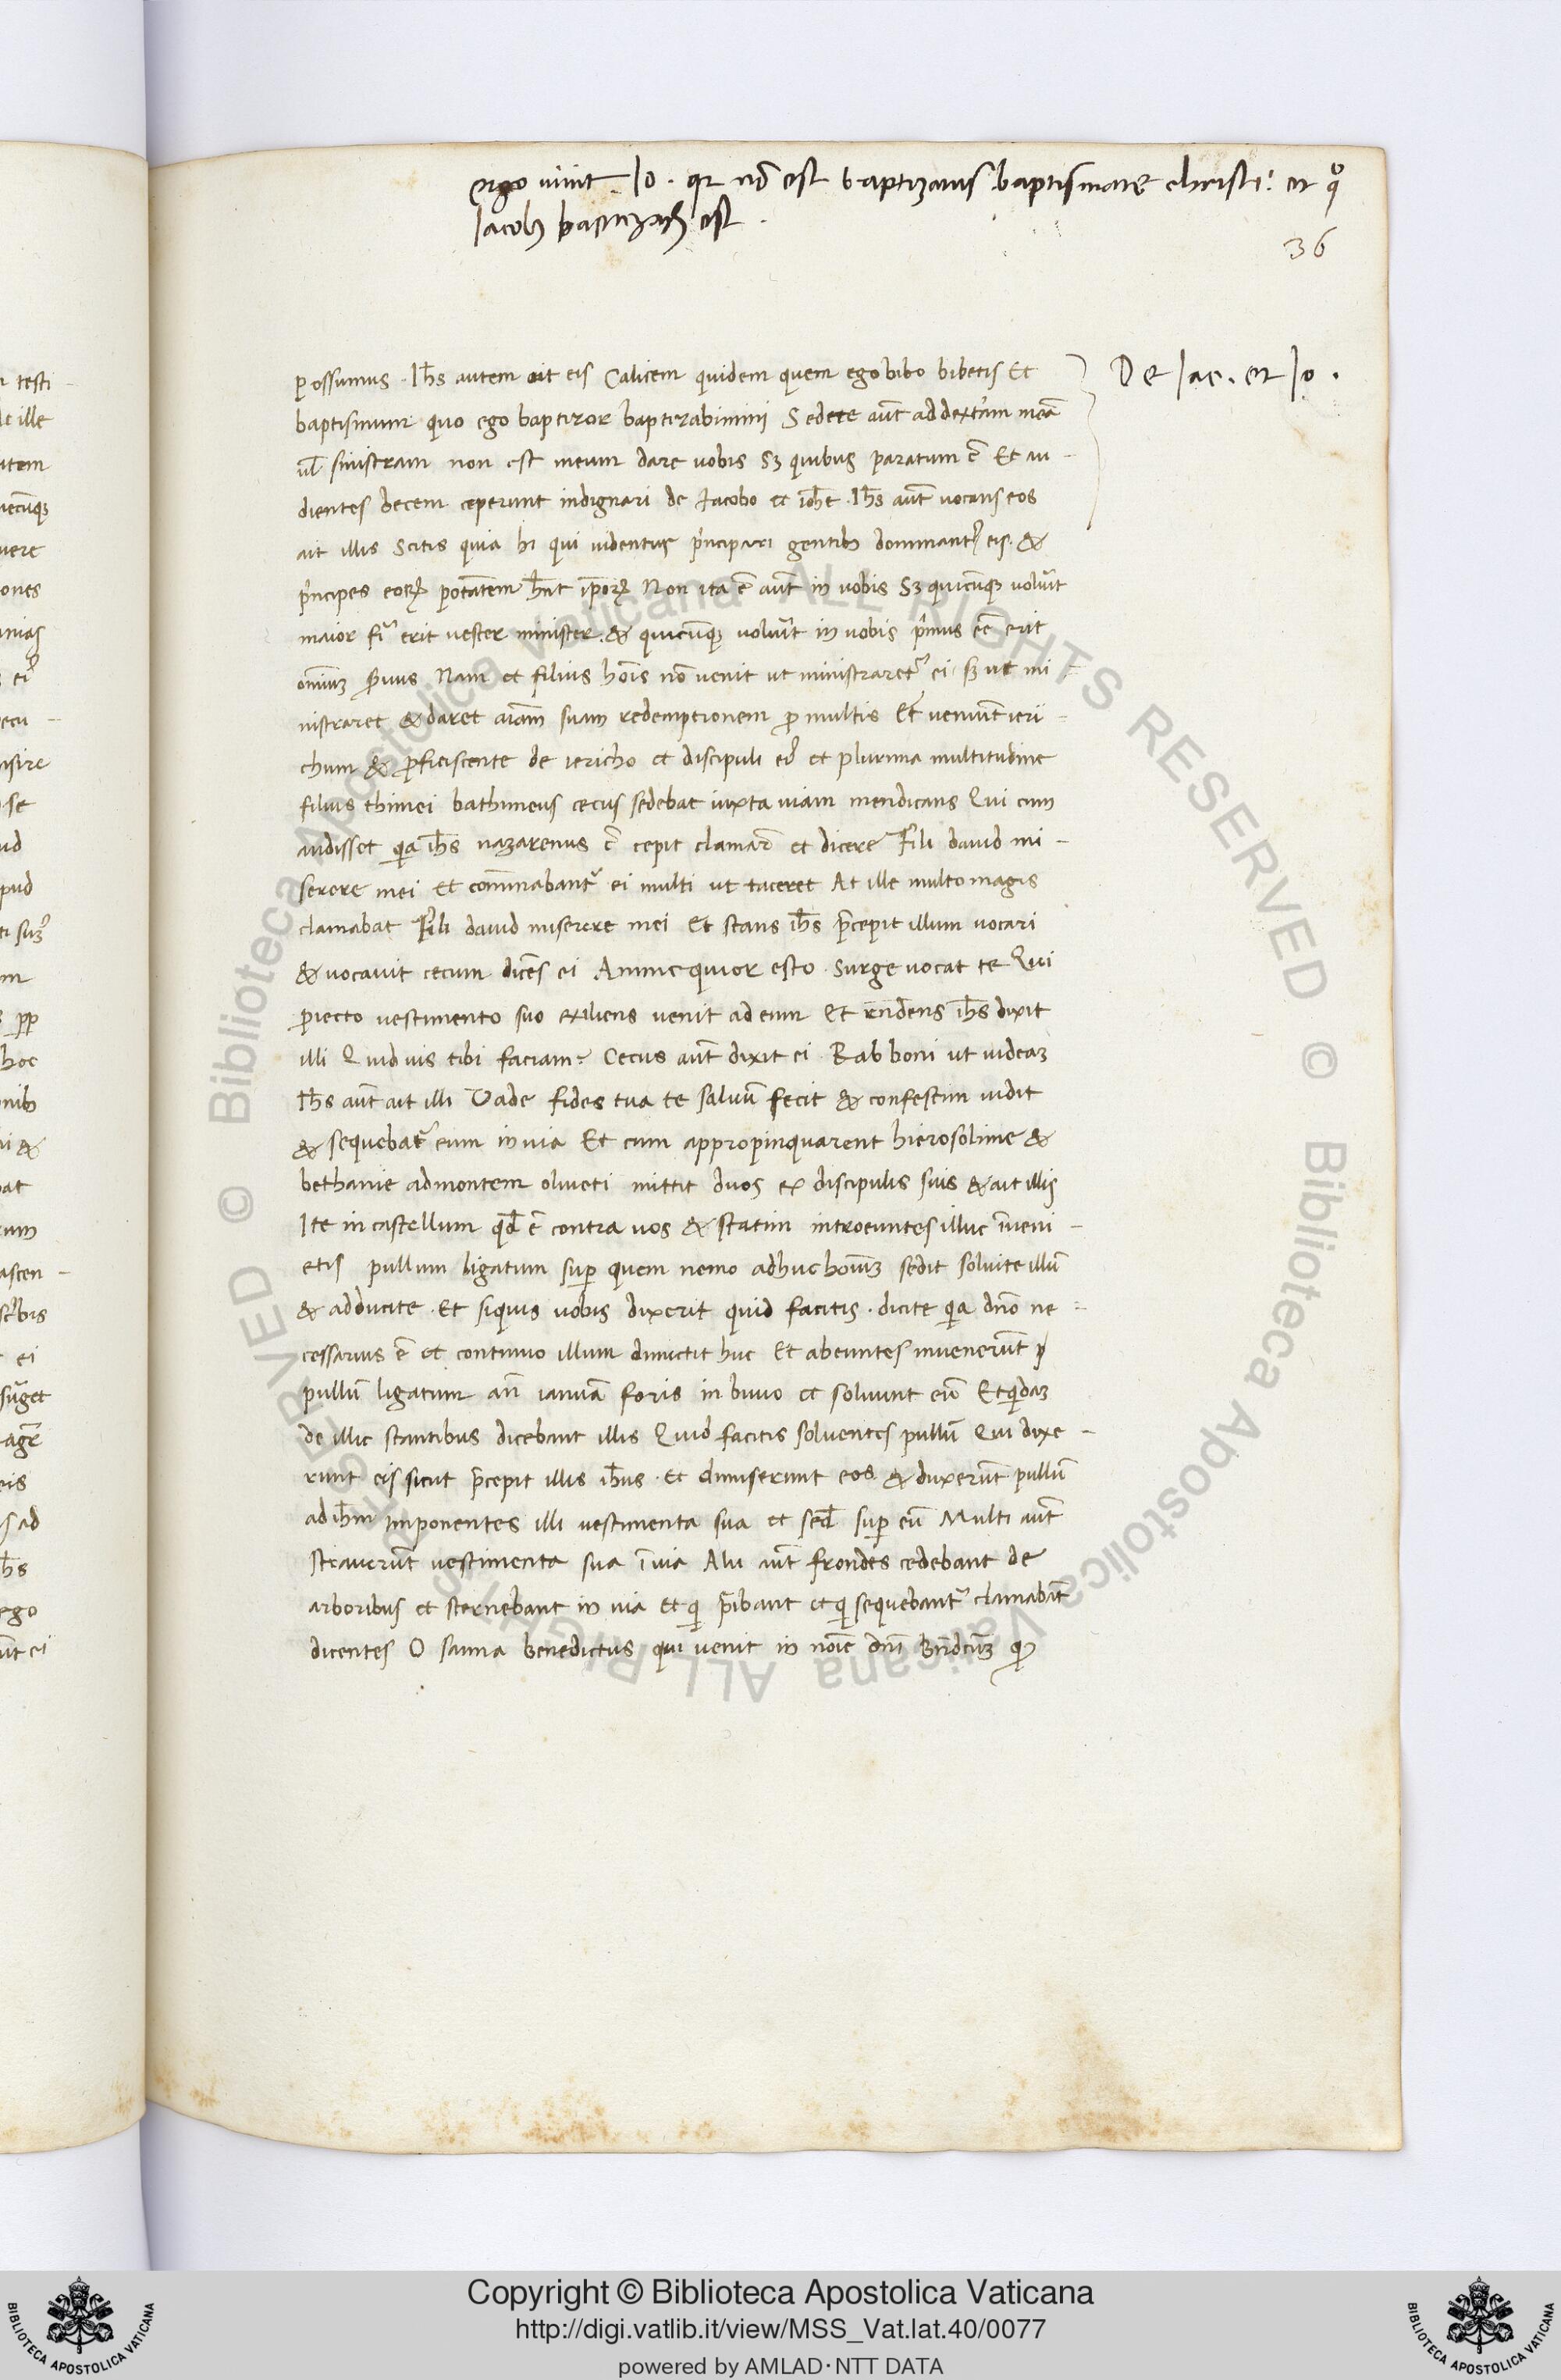 ergo vivit Io. qr nō est baptizatus baptismate christi: et qͦ
Iacob9 baptizat9 est.
36
De Iac. et Io.
possumus. Ih̄s autem ait eis Calicem quidem quem ego bibo bibetis Et
baptismum quo ego baptizor baptizabimini Sedere aūt ad dextram meā
ul̄ sinistram non est meum dare uobis Sꝫ quibus paratum ē Et au-
dientes decem ceperunt indignari de Iacobo et ioh̄e. Ih̄s aūt uocans eos
ait illis Scitis quia hi qui uidentur p͛ncipari gentib9 dominant͛ eis. &
p͛ncipes eoꝝ potātem hn̄t ip̄oꝝ Non ita ē aūt in uobis Sꝫ quicūqꝫ uolu͛it
maior fi͛ erit uester minister. & quicūqꝫ uolu͛it in uobis p͛mus eē erit
omīuꝫ s̄uus Nam et filius hōis nō venit ut ministraret͛ ei sꝫ ut mi-
nistraret & daret aīam suam redemptionem ꝓ multis Et veniūt ieri-
chum & ꝓficiscente de iericho et discipuli ei9 et plurima multitudine
filius thimei bathimeus cecus sedebat iuxta uiam mendicans Qui cum
audisset qͥa ih̄s nazarenus ē cepit clamar̄ et dicere Fili dauid mi-
serere mei Et com̄inabant͛ ei multi ut taceret At ille multo magis
clamabat Fili dauid miserere mei Et stans ih̄s p̄cepit illum uocari
& vocauit cecum dicēs ei Animequior esto. Surge uocat te Qui
ꝓiecto vestimento suo exiliens venit ad eum Et rn̄dens ih̄s dixit
illi Quid uis tibi faciam? Cecus aūt dixit ei Rab boni ut uideaꝫ
Ih̄s aūt ait illi Vade fides tua te saluū fecit & confestim uidit
& sequebat͛ eum in uia Et cum appropinquarent hierosolime &
bethanie ad montem oliueti mittit duos ex discipulis suis & ait illis
Ite in castellum qd̄ ē contra uos & statim introeuntes illuc īueni-
etis pullum ligatum suꝑ quem nemo adhuc homīuꝫ sedit soluite illū
& adducite. Et siquis uobis dixerit quid facitis. dicite qͥa dn̄o ne-
cessarius ē et continuo illum dimictit huc Et abeuntes inuenerūt p
pullū ligatum an̄ ianuā foris in biuio et soluunt eū Et qͥdaꝫ
de illic stantibus dicebant illis Quid facitis soluentes pullū Qui dixe-
runt eis sicut p̄cepit illis ih̄us. Et dimiserunt eos & duxerūt pullū
ad ih̄m Imponentes illi vestimenta sua et sed̄ suꝑ eū Multi aūt
strauerūt vestimenta sua ī uia Alii aūt frondes cedebant de
arboribus et sternebant in uia Et qͥ p̄ibant et qͥ sequebant͛ clamabāt
dicentes O sanna benedictus qui uenit in noīe dn̄i Bn̄dctūꝫ qͩ
Copyright © Biblioteca Apostolica Vaticana
http://digi.vatlib.it/view/MSS_Vat.lat.40/0077
powered by AMLAD·NTT DATA